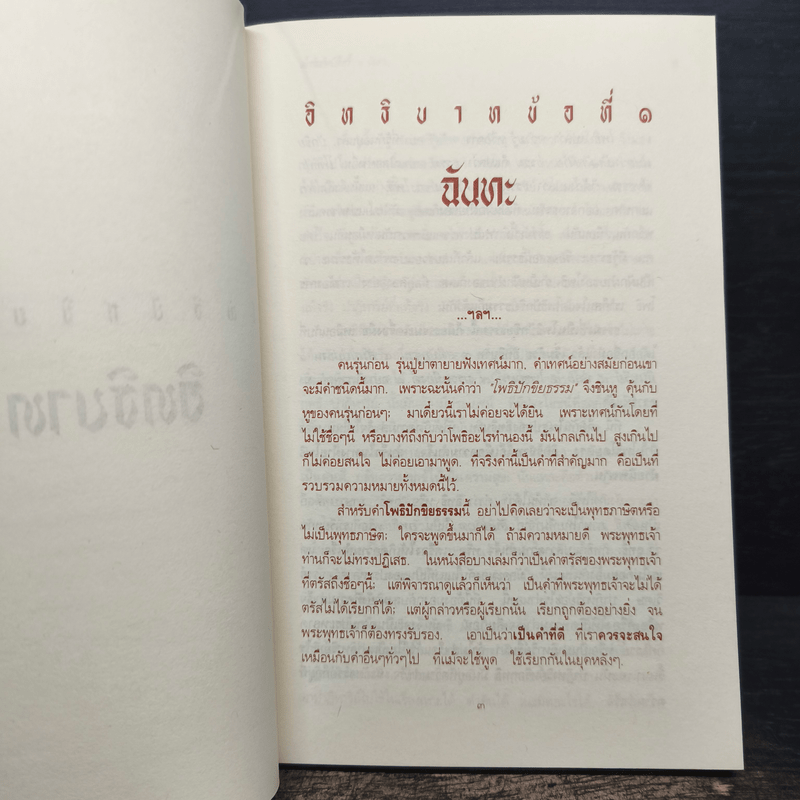 อิทธิบาทข้อที่๑
ฉันทะ
...ฯลฯ...
คนรุ่นก่อน รุ่นปู่ย่าตายายฟังเทศน์มาก. คำเทศน์อย่างสมัยก่อนเขา
จะมีคำชนิดนี้มาก. เพราะฉะนั้นคำว่า "โพธิปักขิยธรรม" จึงชินหู คุ้นกับ
หูของคนรุ่นก่อนๆ; มาเดี๋ยวนี้เราไม่ค่อยจะได้ยิน เพราะเทศน์กันโดยที่
ไม่ใช้ชื่อๆนี้ หรือบางทีถึงกับว่าโพธิอะไรทำนองนี้ มันไกลเกินไป สูงเกินไป
ก็ไม่ค่อยสนใจ ไม่ค่อยเอามาพูด. ที่จริงคำนี้เป็นคำที่สำคัญมาก คือเป็นที่
รวบรวมความหมายทั้งหมดนี้ไว้.
สำหรับคำโพธิปักขิยธรรมนี้ อย่าไปคิดเลยว่าจะเป็นพุทธภาษิตหรือ
ไม่เป็นพุทธภาษิต; ใครจะพูดขึ้นมาก็ได้ ถ้ามีความหมายดี พระพุทธเจ้า
ท่านก็จะไม่ทรงปฏิเสธ. ในหนังสือบางเล่มก็ว่าเป็นคำตรัสของพระพุทธเจ้า
ที่ตรัสถึงชื่อๆนี้; แต่พิจารณาดูแล้วก็เห็นว่า เป็นคำที่พระพุทธเจ้าจะไม่ได้
ตรัสไม่ได้เรียกก็ได้; แต่ผู้กล่าวหรือผู้เรียกนั้น เรียกถูกต้องอย่างยิ่ง จน
พระพุทธเจ้าก็ต้องทรงรับรอง. เอาเป็นว่าเป็นคำที่ดี ที่เราควรจะสนใจ
เหมือนกับคำอื่นๆทั่วๆไป ที่แม้จะใช้พูด ใช้เรียกกันในยุคหลังๆ.
๓